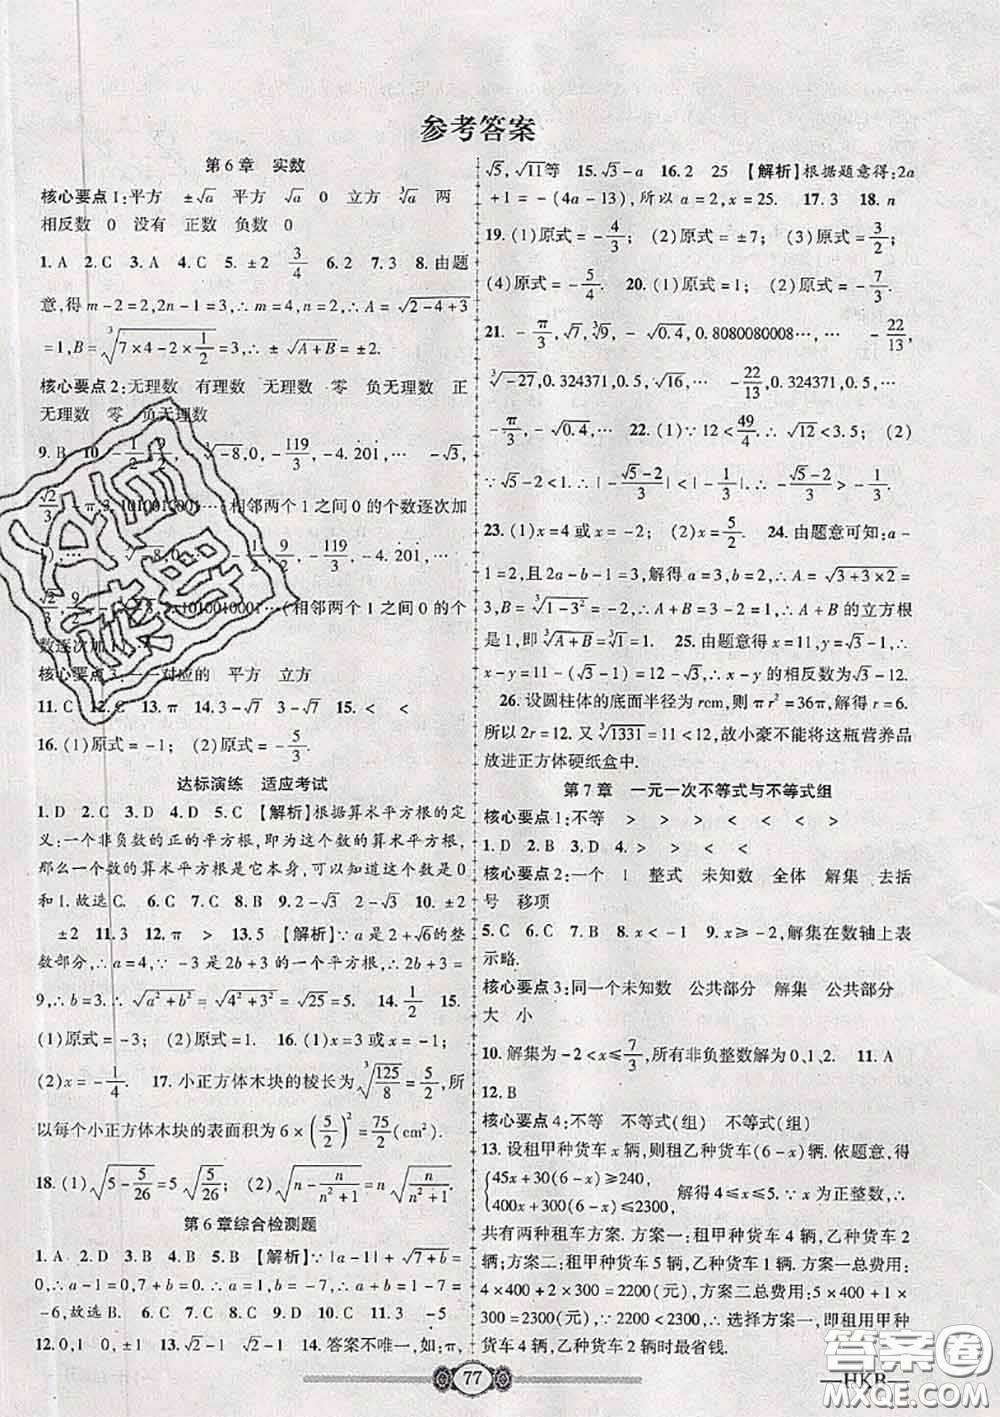 参考答案
第6章 实数
核心要点1:平方 ±√a 平方 √a 0 立方 ∛a 两
相反数 0 没有 正数 负数 0
1.A 2.C 3.A 4.C 5.±2 3/4 6.2 7.3 8.由题
意,得m-2=2,2n-1=3,∴m=4,n=2,∴A=√(2-4+3)
=1,B=∛(7×4-2×1/2)=3,∴±√(A+B)=±2.
核心要点2:无理数 有理数 无理数 零 负无理数 正
无理数 零 负无理数
9.B 10.-1/2,9/2,∛-8,0,-119/3,-4.2̇01̇,… -√3,
√2/3,-π,3.1010010001…(相邻两个1之间0的个数逐次加
∛-8,0,-1/2,9/2,-119/3,-4.2̇01̇,…
√2/3,9/2,-√3,3.1010010001…(相邻两个1之间0的个
数逐次加1)
核心要点3:一一对应的 平方 立方
11.C 12.C 13.π 14.3-√3 3-√3 15.< <
16.(1)原式=-1; (2)原式=-5/3.
达标演练 适应考试
1.D 2.C 3.D 4.D 5.C 【解析】根据算术平方根的定
义:一个非负数的正的平方根,即为这个数的算术平方根,
那么一个数的算术平方根是它本身,可以知道这个数是0
和1.故选C. 6.C 7.C 8.B 9.2-√3 2-√3 10.±2
±2 11.3 12.π > 13.5 【解析】∵a是2+√6的整
数部分,∴a=4,∵-3是2b+3的一个平方根,∴2b+3=
9,∴b=3.∴√(a²+b²)=√(4²+3²)=√25=5. 14.1/2 15.
(1)原式=-3; (2)原式=5. 16.(1)x=3或x=-1;
(2)x=-1/4. 17.小正方体木块的棱长为∛(125/8)=5/2,所
以每个小正方体木块的表面积为6×(5/2)²=75/2(cm²).
18.(1)√(5-5/26)=5√(5/26) (2)√(n-n/(n²+1))=n√(n/(n²+1))
第6章综合检测题
1.A 2.D 3.C 4.B 5.B 【解析】∵|a-1|+√(7+b)=
0,∴a-1=0,7+b=0,∴a=1,b=-7,∴a+b=1-7=
-6,故选B. 6.C 7.D 8.B 9.C 10.C 11.3 -5
12.0,1 0,±1 13.√2-1 √2-1 14.答案不唯一,如:π,
√5,√11等 15.√3-a 16.2 25 【解析】根据题意得:2a
+1=-(4a-13),所以a=2,x=25. 17.3 18.n
19.(1)原式=-4/3; (2)原式=±7; (3)原式=3/2;
(4)原式=-5/4. 20.(1)原式=1; (2)原式=-7/3.
21.-π/3,√7,∛9,-√0.4,0.8080080008…,… -22/13,
∛-27,0.324371,0.5,√16,… -22/13,0.324371,0.5,…
-π/3,-√0.4,… 22.(1)∵12<49/4.∴√12<3.5; (2)
∵√5-2<1.∴(√5-2)/3<1/3.∴|-(√5-2)/3|<|-1/3|.∴-(√5-2)/3>-1/3.
23.(1)x=4或x=-2; (2)x=5/2. 24.由题意可知:a-
1=2,且2a-b-1=3,解得a=3,b=2,∴A=√(3+3×2)=
3,B=∛(1-3²)=-2,∴A+B=3-2=1,∴A+B的立方根
是1,即∛(A+B)=∛1=1. 25.由题意得x=11,y=√3-1,∴
x-y=11-(√3-1)=12-√3,∴x-y的相反数为√3-12.
26.设圆柱体的底面半径为rcm,则πr²=36π,解得r=6.
所以2r=12.又∛1331=11<12,故小豪不能将这瓶营养品
放进正方体硬纸盒中.
第7章 一元一次不等式与不等式组
核心要点1:不等 > > > < < < >
1.D 2.B 3.D 4.> > < <
核心要点2:一个 1 整式 未知数 全体 解集 去括
号 移项
5.C 6.C 7.B 8.x<-1 9.x≥-2,解集在数轴上表
示略.
核心要点3:同一个未知数 公共部分 解集 公共部分
大 小
10.解集为-2<x≤7/3,所有非负整数解为0、1、2. 11.A
12.B
核心要点4:不等 不等式(组) 不等式(组)
13.设租甲种货车x辆,则租乙种货车(6-x)辆.依题意,得
{45x+30(6-x)≥240, 400x+300(6-x)≤2300 解得4≤x≤5.∵x为正整数,∴
共有两种租车方案.方案一:租甲种货车4辆,乙种货车2
辆;方案二:租甲种货车5辆,乙种货车1辆.方案一总费用:
4×400+2×300=2200(元),方案二总费用:5×400+1×
300=2300(元).∵2200<2300,∴选择方案一,即租用甲种
货车4辆,乙种货车2辆时最省钱.
77
HKB
答案圈